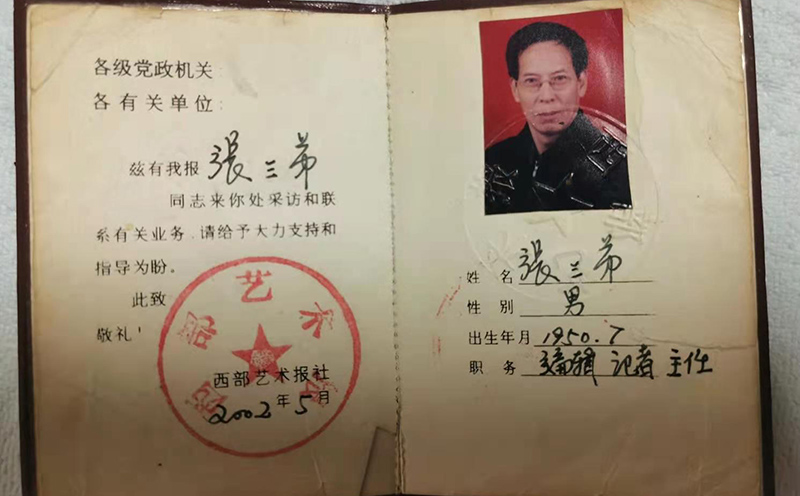 各级党政机关:
各有关单位:
兹有我报 張三弟
同志来你处采访和联
系有关业务,请给予大力支持和
指导为盼。
此致
敬礼!
西部艺术报社
西部艺术报社
2002年5月
姓名 張三弟
性别 男
出生年月 1950.7
职务 编辑 记者 主任